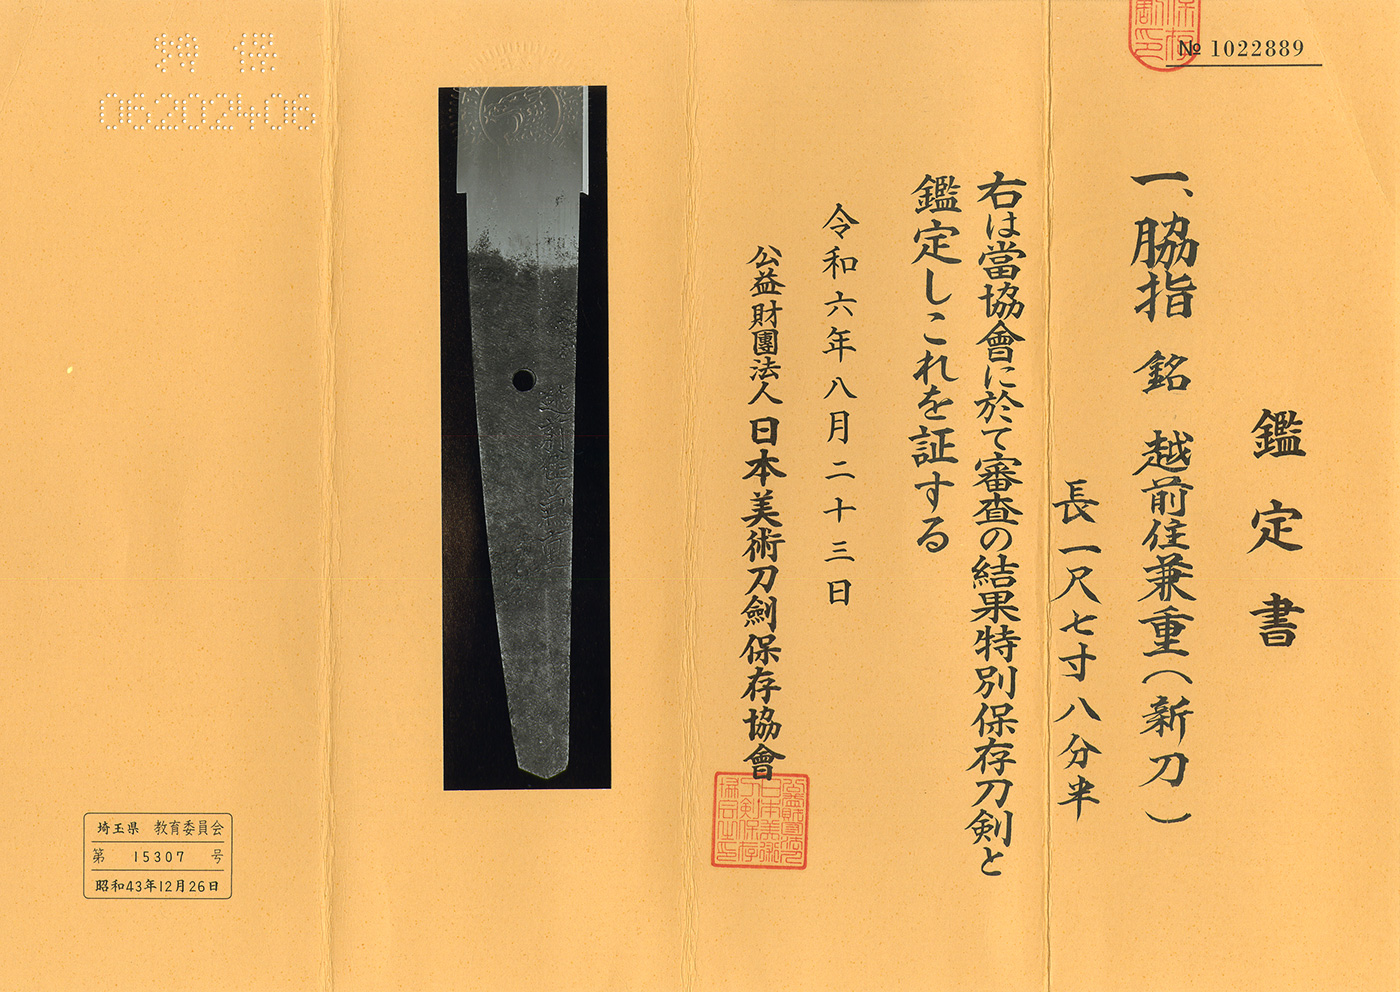 № 1022889
鑑定書
一、脇指 銘 越前住兼重(新刀)
長一尺七寸八分半
右は當協會に於て審査の結果特別保存刀剣と
鑑定しこれを証する
令和六年八月二十三日
公益財團法人 日本美術刀劍保存協會
越前住兼重
06202406
埼玉県 教育委員会
第 15307 号
昭和43年12月26日